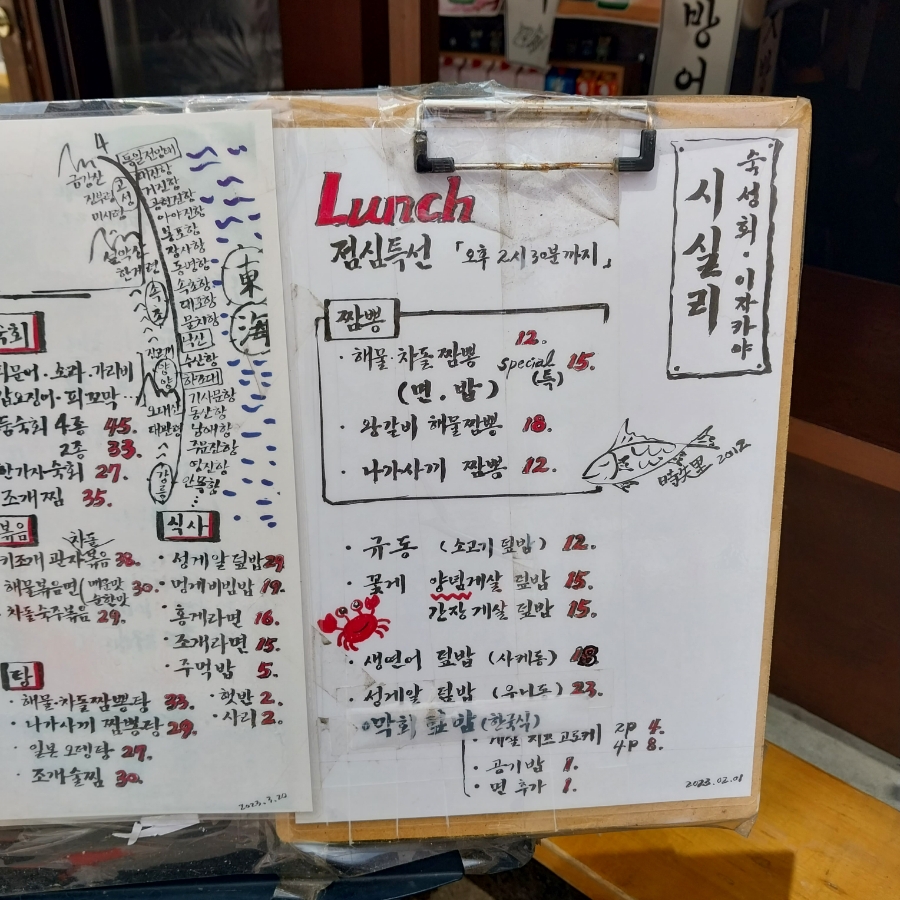 방어
4
통일전망대
금강산
고성
거진항
아야진항
봉포항
장사항
동명항
속초항
대포항
물치항
낙산
수산항
하조대
기사문항
동산항
남애항
주문진항
영진항
안목항
미시령
설악산
한계령
속초
양양
강릉
東海
숙회
피문어·소라·가리비
갑오징어·피꼬막
모둠숙회 4종 45.
2종 33.
한가지숙회 27.
조개찜 35.
볶음
차돌
키조개 관자볶음 38.
해물볶음면(매운맛 순한맛 30.
차돌숙주볶음 29.
탕
해물·차돌짬뽕탕 33.
나가사끼 짬뽕탕 29.
일본오뎅탕 27.
조개술찜 30.
식사
성게알 덮밥 29
멍게비빔밥 19.
홍게라면 16.
조개라면 15.
주먹밥 5.
햇반 2.
사리 2.
2023.3.20
Lunch
점심특선 「오후 2시 30분까지」
짬뽕
해물·차돌짬뽕 12. special (특) 15.
(면.밥)
왕갈비 해물짬뽕 18.
나가사끼 짬뽕 12.
규동 (소고기 덮밥) 12.
꽃게 양념게살 덮밥 15.
간장게살 덮밥 15.
생연어 덮밥 (사케동) 18
성게알 덮밥 (우니동) 23.
막회 덮밥 (한국식)
게살 치즈고로케 2P 4.
4P 8.
공기밥 1.
면 추가 1.
2023.02.01
숙성회·이자카야
시실리
時失里 2012